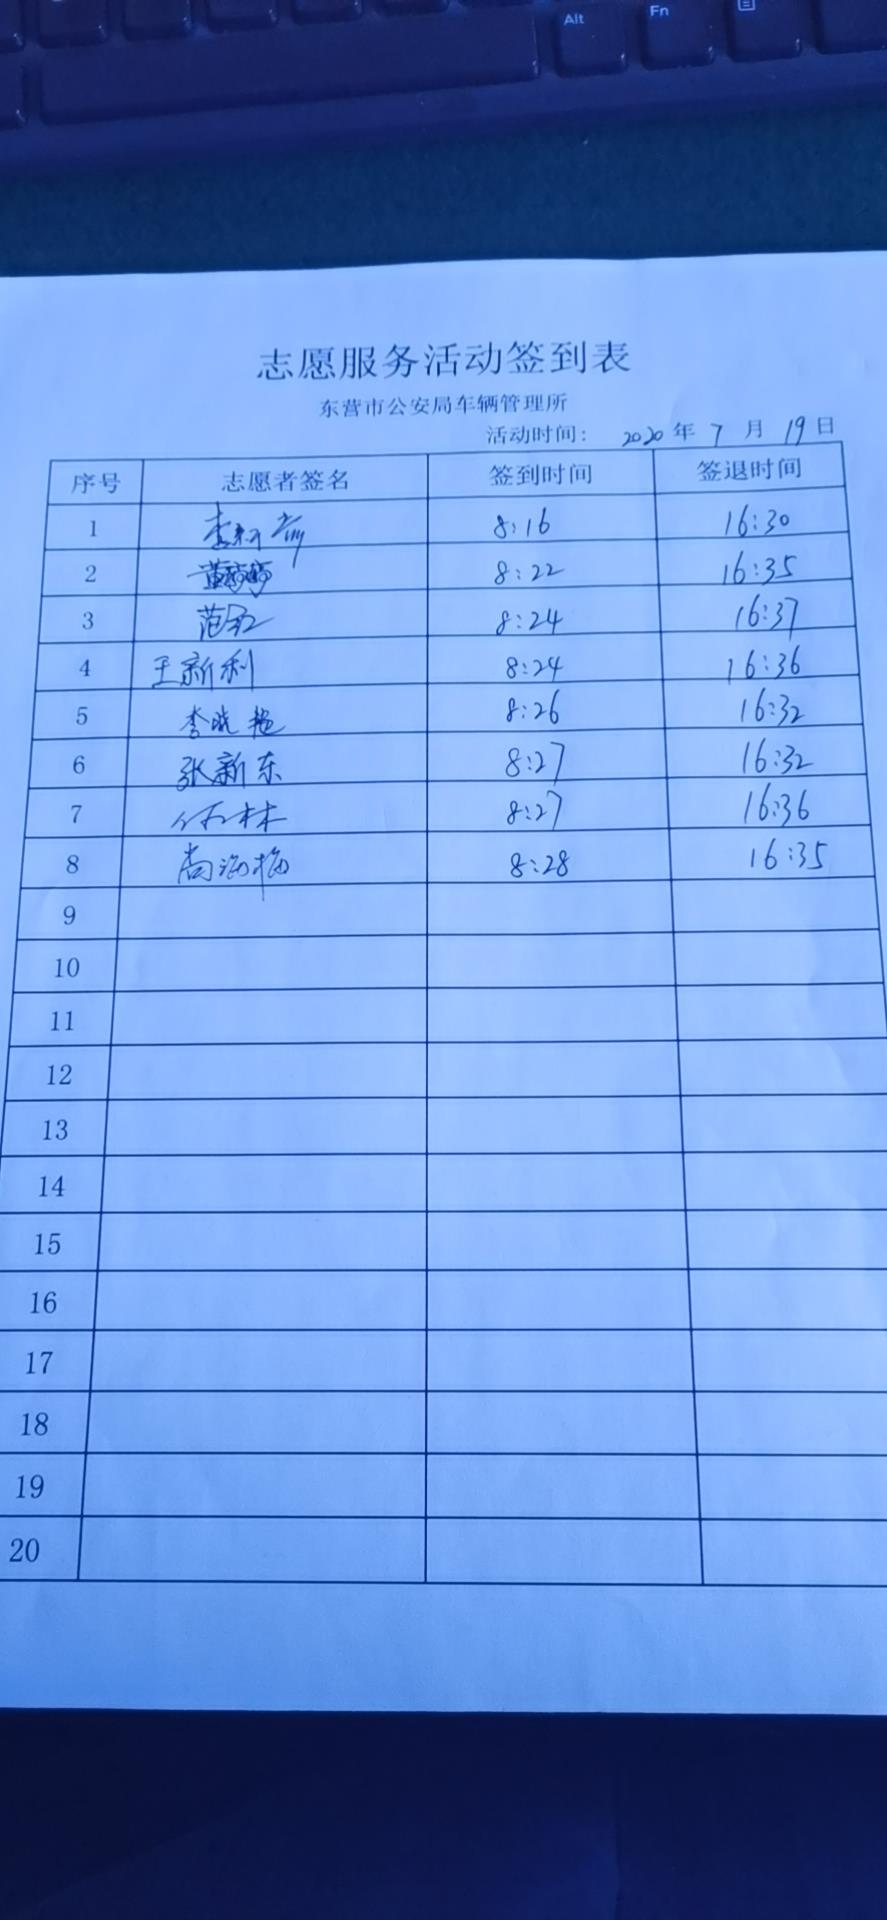 Alt Fn
志愿服务活动签到表
东营市公安局车辆管理所
活动时间: 2020 年 7 月 19 日
序号 志愿者签名 签到时间 签退时间
1 8:16 16:30
2 8:22 16:35
3 范 8:24 16:37
4 王新利 8:24 16:36
5 李晓艳 8:26 16:32
6 张新东 8:27 16:32
7 林 8:27 16:36
8 尚海梅 8:28 16:35
9
10
11
12
13
14
15
16
17
18
19
20